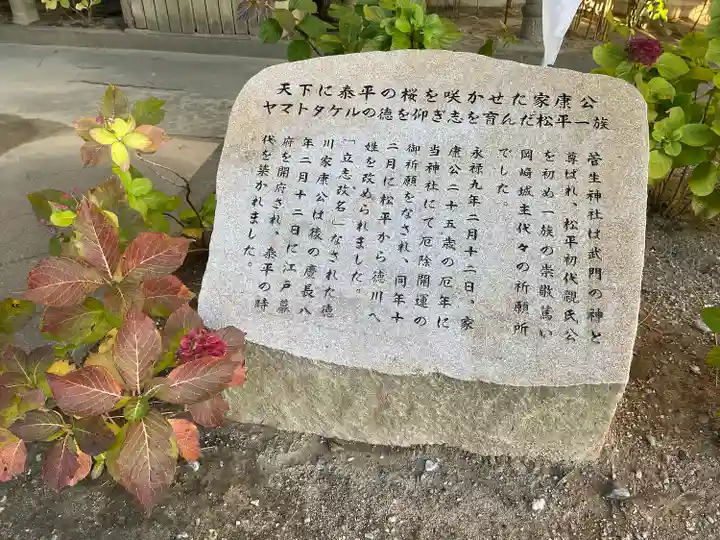 天下に泰平の桜を咲かせた家康公
ヤマトタケルの徳を仰ぎ志を育んだ松平一族
菅生神社は武門の神と
尊ばれ、松平初代親氏公
を初め一族の崇敬篤い
岡崎城主代々の祈願所
でした。
永禄九年二月十二日、家
康公二十五歳の厄年に
当神社にて厄除開運の
御祈願をなされ、同年十
二月に松平から徳川へ
姓を改められました。
「立志、改名」なされた徳
川家康公は後の慶長八
年二月十二日に江戸幕
府を開府され、泰平の時
代を築かれました。